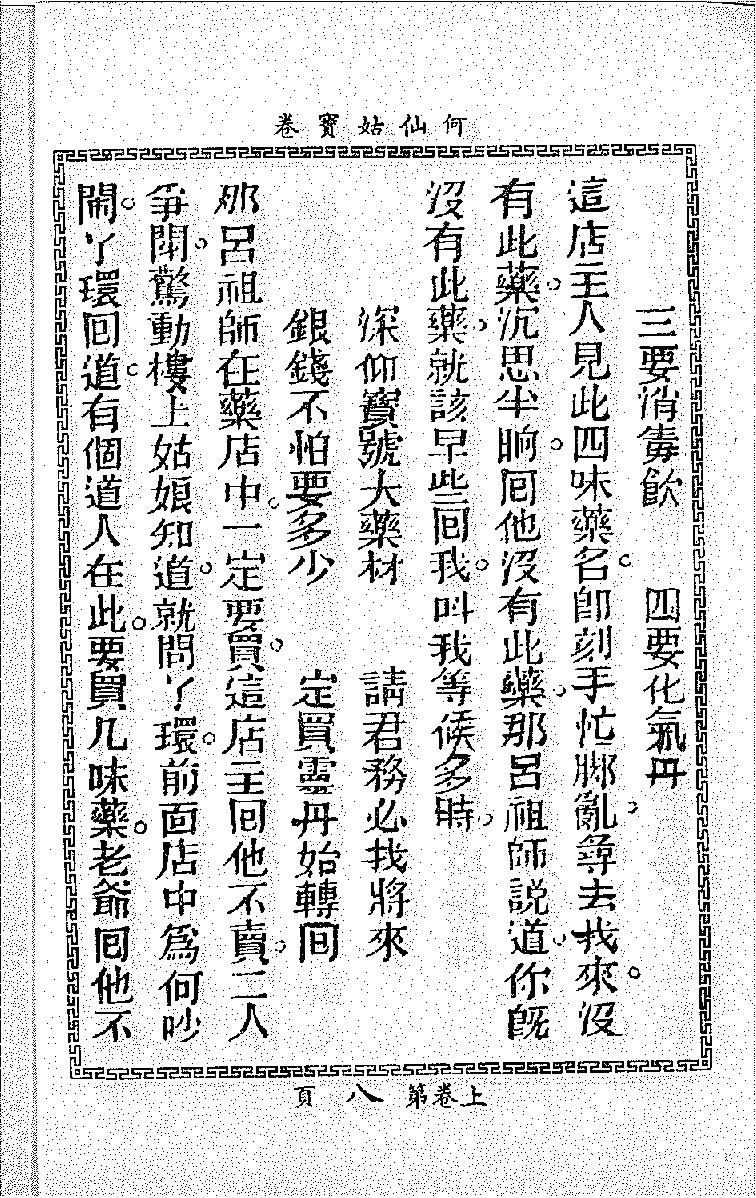 何仙姑寶卷
三要消毒飮　四要化氣丹
這店主人見此四味藥名。卽刻手忙脚亂。尋去找來。沒
有此藥。沉思半晌。囘他沒有此藥。那呂祖師說道。你旣
沒有此藥。就該早些囘我。叫我等候多時。
深仰寶號大藥材　請君務必找將來
銀錢不怕要多少　定買靈丹始轉囘
那呂祖師在藥店中。一定要買。這店主囘他不賣。二人
爭鬧。驚動樓上姑娘知道。就問丫環。前面店中爲何吵
鬧。丫環囘道。有個道人在此。要買几味藥。老爺囘他不
上卷第八頁